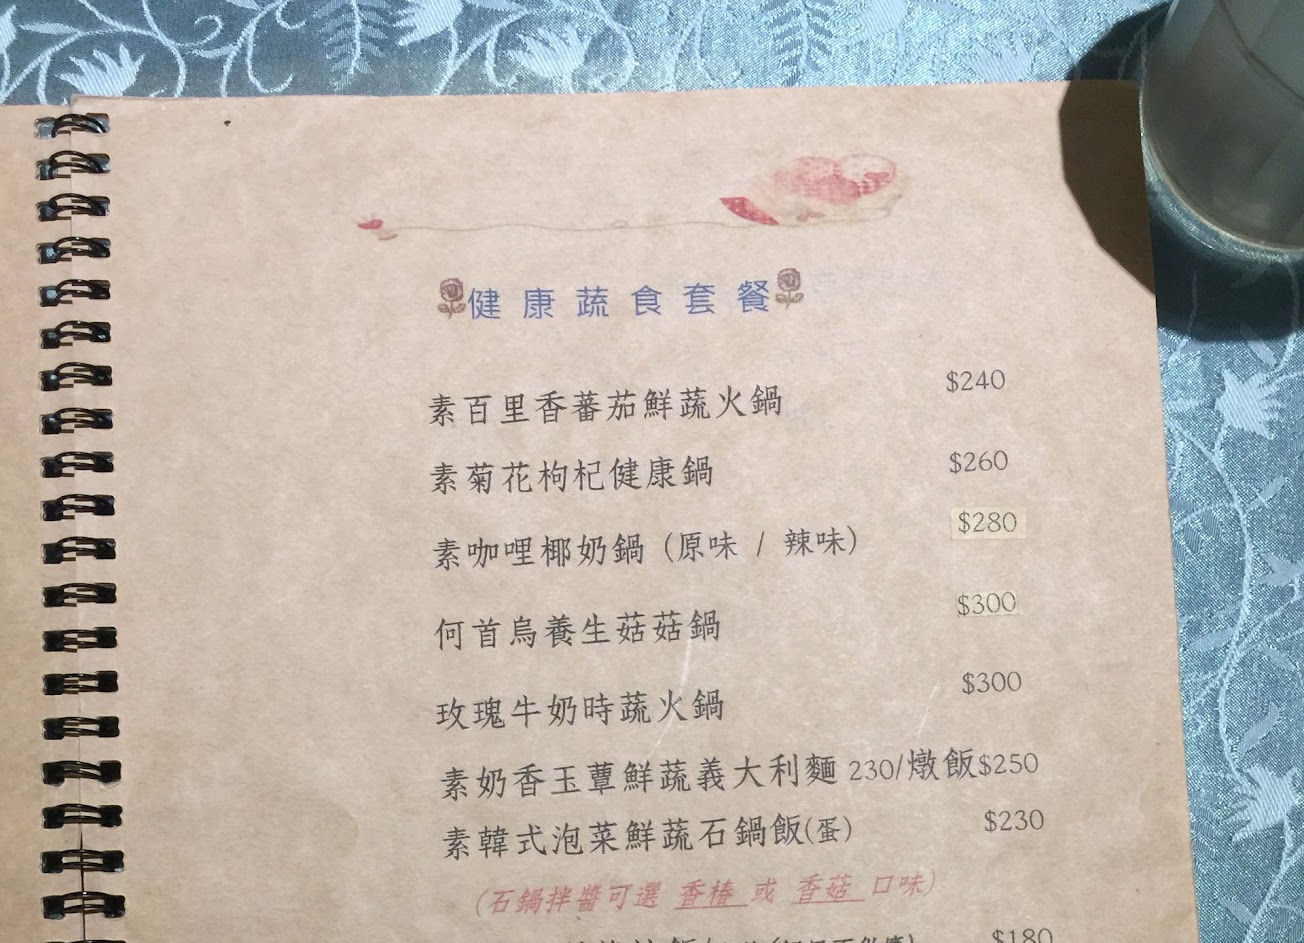 健康蔬食套餐
素百里香蕃茄鮮蔬火鍋 $240
素菊花枸杞健康鍋 $260
素咖哩椰奶鍋（原味 / 辣味） $280
何首烏養生菇菇鍋 $300
玫瑰牛奶時蔬火鍋 $300
素奶香玉蕈鮮蔬義大利麵 230/燉飯$250
素韓式泡菜鮮蔬石鍋飯(蛋) $230
(石鍋拌醬可選 香椿 或 香菇 口味)
$180